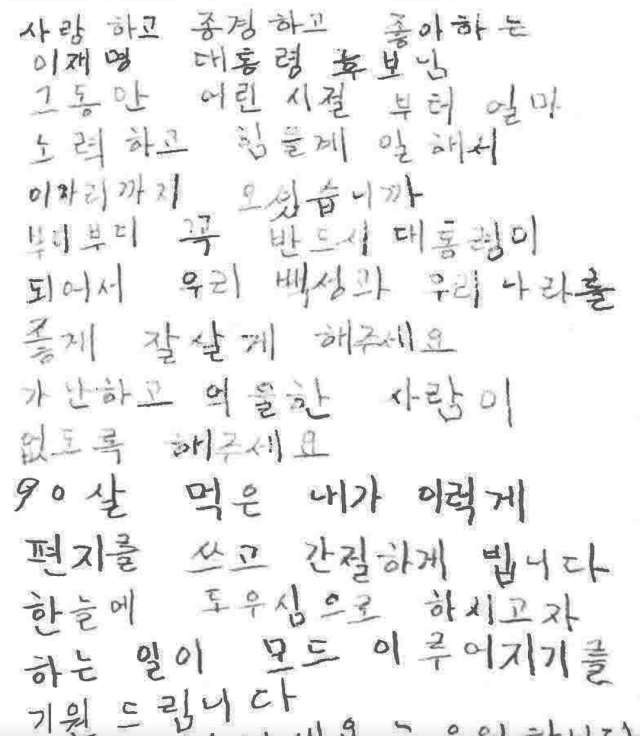 사랑 하고 종경 하고 좋아하는
이재명 대통령 후보님
그동안 어린 시절 부터 얼마
노력하고 힘들게 일 해서
이자리까지 오싰습니까
부디부디 꼭 반드시 대통령이
되어서 우리 백성과 우리 나라를
좋게 잘살게 해주세요
가난하고 억울한 사람이
없도록 해주세요
90살 먹은 내가 이럭게
편지를 쓰고 간절하게 빕니다
한늘에 도우심으로 하시고자
하는 일이 모드 이루어지기를
기원 드립니다